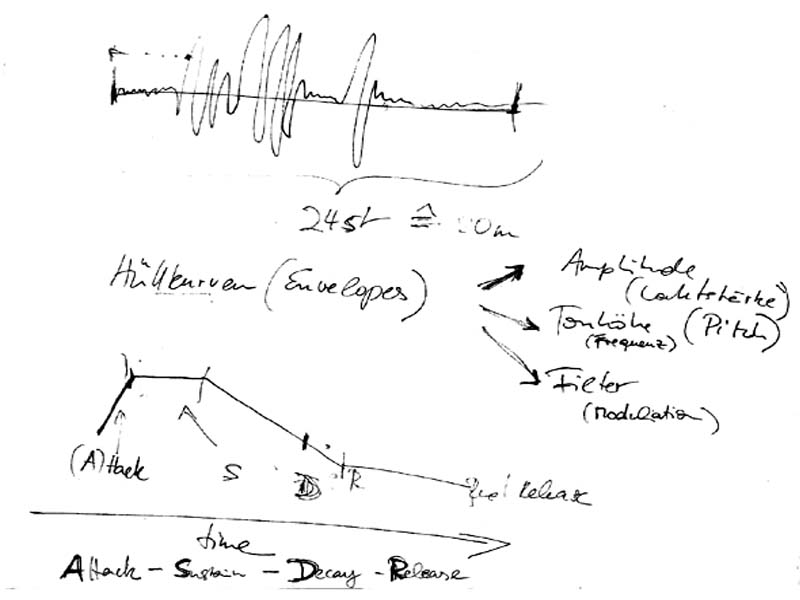 24st ≙ 20m
Hüllkurven (Envelopes)
Amplitude
(Lautstärke)
Tonhöhe (Pitch)
(Frequenz)
Filter
(Modulation)
(A)ttack
S
D
R
Release
time
Attack - Sustain - Decay - Release